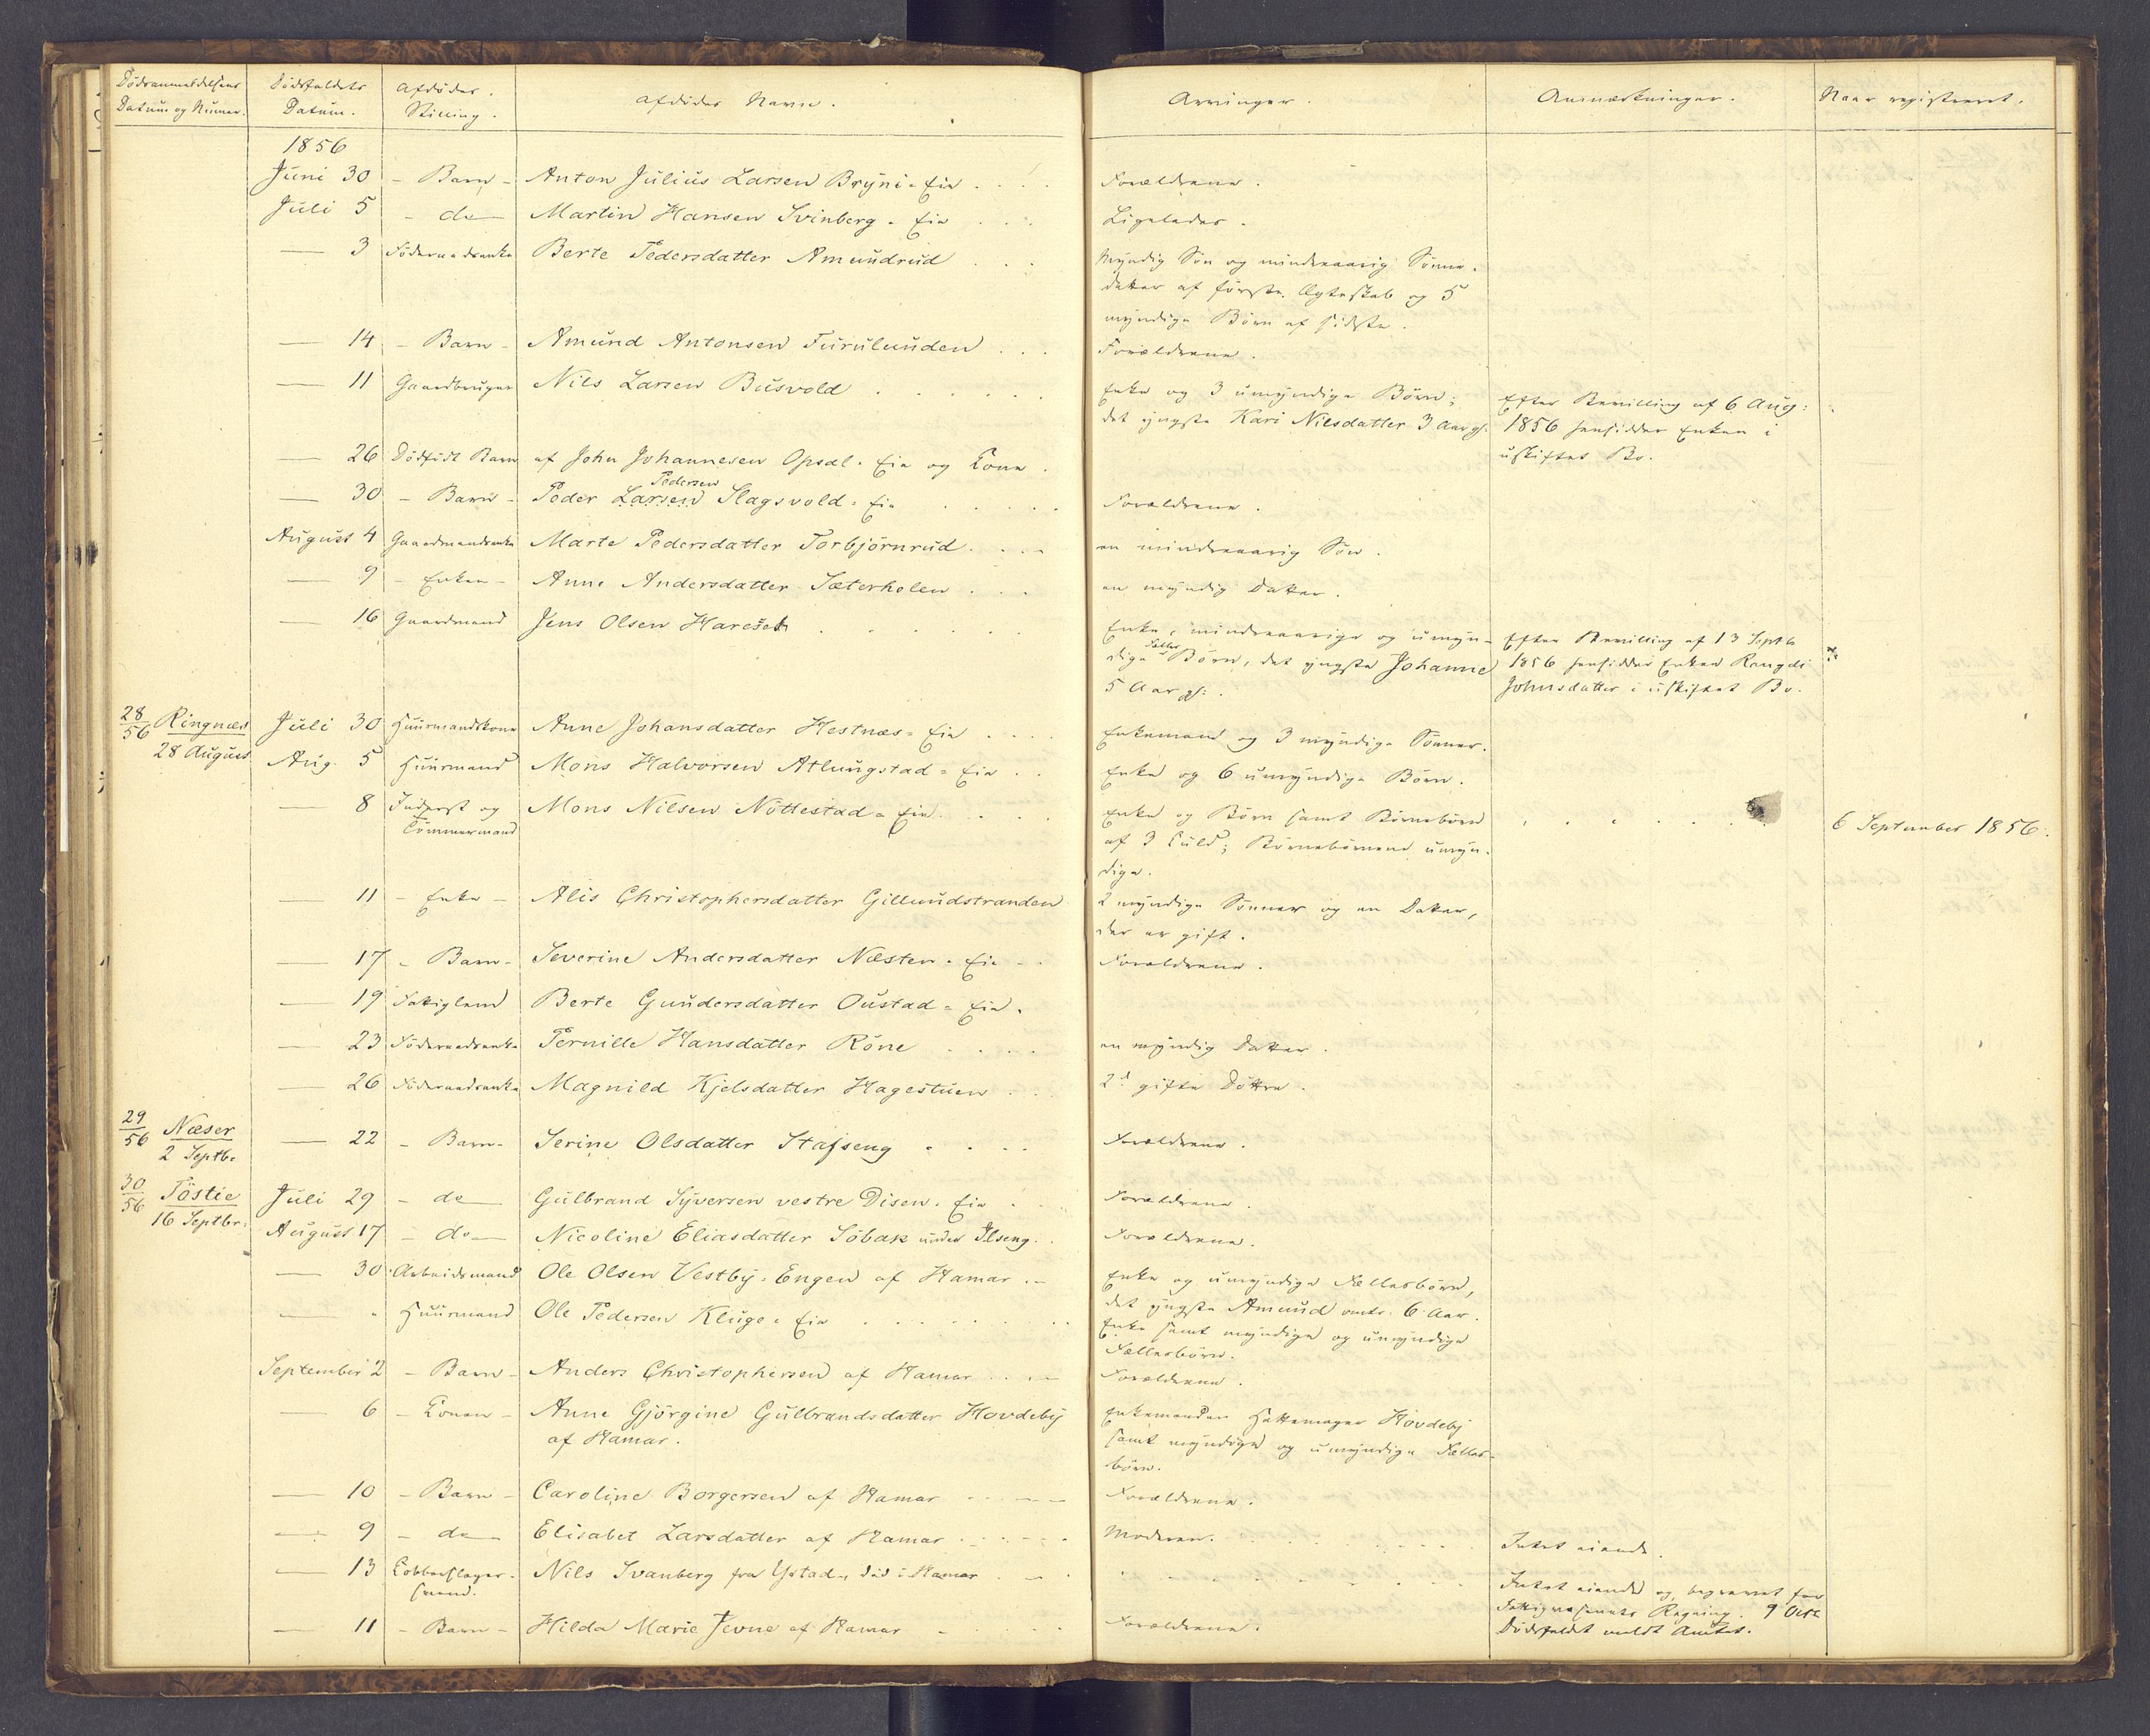 Dödsanmeldelsens Datum og Numer. Dödsfaldets Datum. Afdödes Stilling. Afdödes Navn. Arvinger. Anmærkninger. Naar registreret.
1856
Juni 30 - Barn - Anton Julius Larsen Bryni-Eie . . . . Forældrene.
Juli 5 - do - Martin Hansen Svinberg-Eie . . . Ligeledes.
— 3 Föderaadsenke Berte Pedersdatter Amundrud . . . Myndig Sön og mindreaarig Sönne-
datter af förste Ægteskab og 5
myndige Börn af sidste.
— 14 - Barn - Amund Antonsen Furulunden . . . Forældrene.
— 11 Gaardbruger Nils Larsen Busvold . . . . . . Enke og 3 umyndige Börn; Efter Bevilling af 6 Aug:
det yngste Kari Nilsdatter 3 Aar gl. 1856 hensidder Enken i
— 26 Dödfödt Barn af John Johannesen Opsal-Eie og Kone . uskiftet Bo.
Pedersen
— 30 - Barn - Peder Larsen Slagsvold-Eie . . . . . Forældrene.
August 4 Gaardmandsenke Marte Pedersdatter Torbjörnrud . . . . en mindreaarig Sön.
— 9 - Enken - Anne Andersdatter Sæterholen . . . en myndig Datter.
— 16 Gaardmand Jens Olsen Hareset . . . . . . Enke, mindreaarige og umyn- Efter Bevilling af 13 Septb
dige Fælles Börn, det yngste Johanne 1856 hensidder Enken Rangdi
5 Aar gl. Johnsdatter i uskiftet Bo.
28/56 Ringnæs Juli 30 Huusmandskone Anne Johansdatter Hestnæs-Eie . . . . Enkemand og 3 myndige Sönner.
28 August Aug. 5 Huusmand Mons Halvorsen Atlungstad-Eie . . Enke og 6 umyndige Börn.
— 8 Inderst og Mons Nilsen Nöttestad-Eie . . . . Enke og Börn samt Börnebörn . . . . . . 6 September 1856.
Tömmermand af 3 Kuld; Börnebörnene umyn-
dige.
— 11 - Enke - Alis Christophersdatter Gillundstranden 2 myndige Sönner og en Datter,
der er gift.
— 17 - Barn - Severine Andersdatter Næsten-Eie - . Forældrene.
— 19 Fattiglem Berte Gundersdatter Oustad-Eie .
— 23 Föderaadsenke Pernille Hansdatter Röne . . . . en myndig Datter.
— 26 Föderaadsenke Magnild Kjelsdatter Hagestuen . . . 2de gifte Döttre.
29/56 Næser — 22 - Barn - Serine Olsdatter Stafseng . . . . Forældrene.
2 Septb.
30/56 Töstie Juli 29 - do - Gulbrand Syversen vestre Disen-Eie . . Forældrene.
16 Septbr: August 17 - do - Nicoline Eliasdatter Söbak under Ilseng. . Forældrene.
— 30 Arbeidsmand Ole Olsen Vestby-Engen af Hamar . - Enke og umyndige Fællesbörn,
det yngste Amund omtr. 6 Aar.
— " Huusmand Ole Pedersen Kluge-Eie . . . . . . . . Enke samt myndige og umyndige
Fællesbörn.
September 2 - Barn - Anders Christophersen af Hamar . . . - Forældrene.
— 6 - Konen - Anne Gjörgine Gulbrandsdatter Hovdeby Enkemanden Hattemager Hovdeby
af Hamar. samt myndige og umyndige Fælles-
börn.
— 10 - Barn - Caroline Borgersen af Hamar - - - - - Forældrene.
— 9 - do - Elisabet Larsdatter af Hamar . . . - - . Moderen. . . . . . . . Intet eiende.
— 13 Kobberslager- Nils Svanberg fra Ystad, död i Hamar . - . . . . . . . . Intet eiende og begravet for
svend. Fattigvæsenets Regning. 9 Octr
— 11 - Barn - Hilda Marie Jevne af Hamar . . . . . Forældrene. Dödsfaldet meldt Amtet.